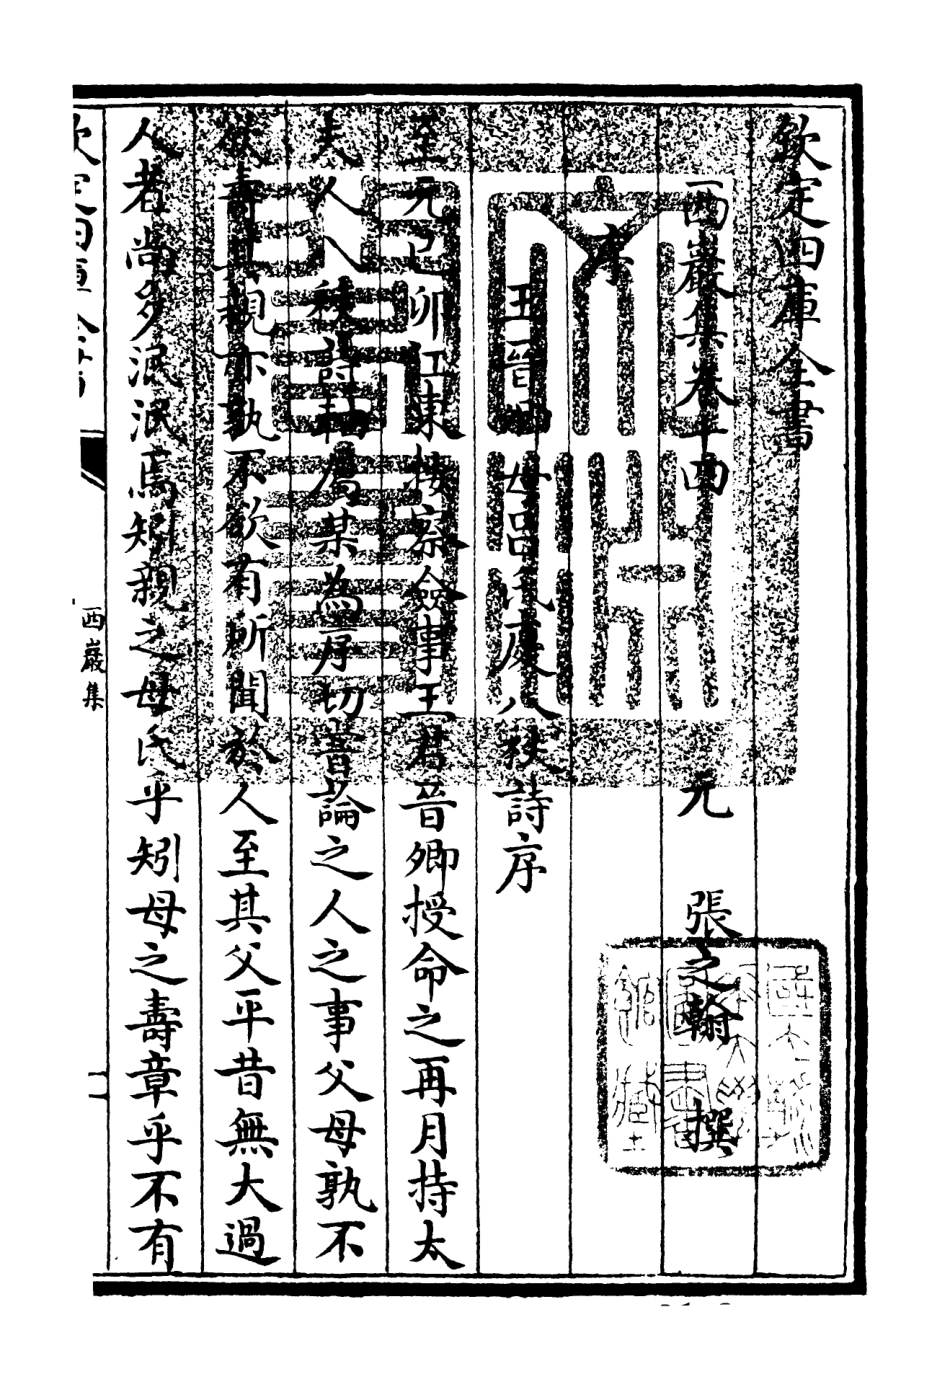 欽定四庫全書
西巖集卷十四
元 張之翰 撰
序
王晉卿母呂氏慶八秩詩序
至元己卯江東按察僉事王君晉卿授命之再月持太
夫人八秩詩軸屬某為序切嘗論之人之事父母孰不
欲壽其親亦孰不欲有所聞於人至其父平昔無大過
人者尚多泯泯焉矧親之母氏乎矧母之壽章乎不有
西巖集
一